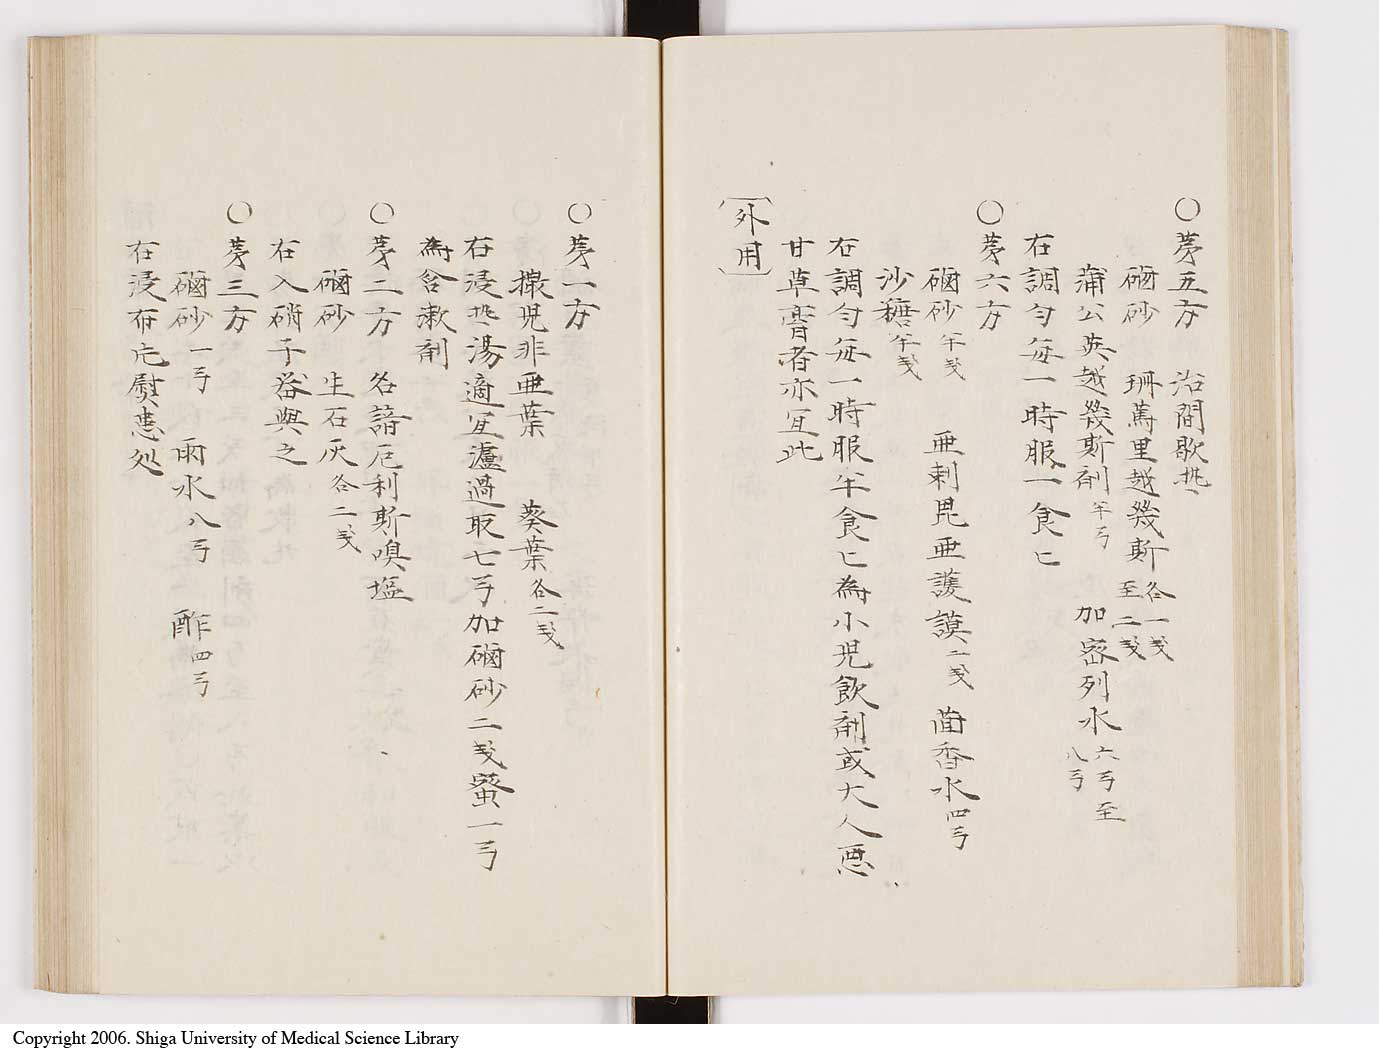 ○ 第五方 治間歇热
硇砂 珊篤里越幾斯 各一戔至二戔
蒲公英越幾斯剤 半弓 加密列水 六弓至八弓
右調匀毎一時服一食匕
○ 第六方
硇砂 半戔 亜剌毘亜護謨 二戔 茴香水 四弓
沙糖 半戔
右調匀毎一時服半食匕為小児飲剤或大人悪
甘草膏者亦宜此
外用
○ 第一方
撒児非亜葉 葵葉 各二戔
右浸热湯適宜瀘過取七弓加硇砂二戔蜜一弓
為含漱剤
○ 第二方 名諳厄利斯嗅塩
硇砂 生石灰 各二戔
右入硝子器與之
○ 第三方
硇砂 一弓 雨水 八弓 酢 四弓
右浸布片熨患処
Copyright 2006. Shiga University of Medical Science Library